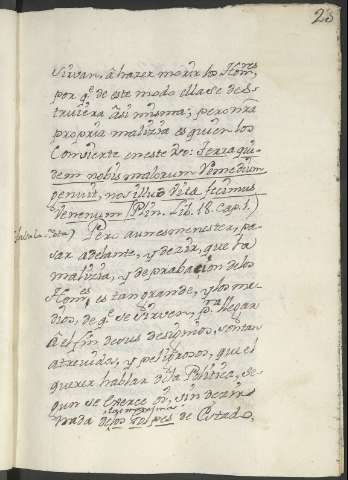 23
sirvan, â hazer morir los Hom.es,
por q.e de este modo ella se des-
truiera âsi misma; pero nrâ
propria malizia es quien los
Convierte en este uso: Terra qui-
dem nobis malorum Remedium
genuit, nos illud vitæ fecimus
Venenum (Plin. Lib. 18. Cap. 1.)
Pero aun es menester, pa-
sar adelante, y dezir, que la
malizia, y depravación de los
Hom.es es tan grande, y los me-
dios, de q.e se sirven, p.ra llegar
â el fin de sus designios, son tan
atrevidos, y peligrosos, que el
querer hablar de la Politica, se-
gun se Exerce oy, sin dezir
nada de los Golpes de Estado,